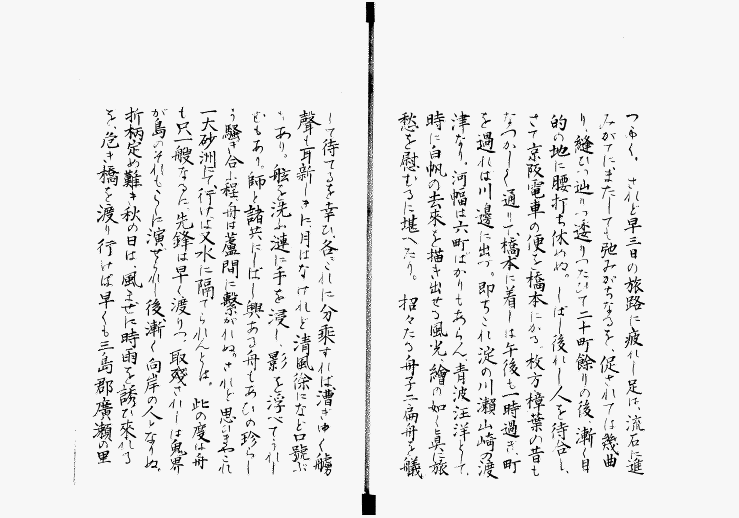 つゝゆく。されど早三日の旅路に疲れし足は、流石に進
みがてにまたしても弛みがちなるを、促されては幾曲
り、縫ひつ辿りつ透りつたひて二十町餘りの後、漸く目
的の地に腰打ち休めぬ。しばし後れし人を待合し、
さて京阪電車の便を橋本にかる。枚方樟葉の昔も
なつかしく通りて、橋本に着しは午後も一時過ぎ、町
を過れは川邊に出づ。即ちこれ淀の川瀬山崎の渡
津なり。河幅は六町ばかりもあらん、青波汪洋として、
時に白帆の去來を描き出せる風光繪の如く、眞に旅
愁を慰むるに堪へたり。招々たる舟子二扁舟を艤
して待てるを幸ひ、各これに分乘すれは漕ぎゆく艣
聲も耳新しきに、月はなけれど清風徐になど口號ぶ
もあり。舷を洗ふ漣に手を浸し、影を浮べてうれ
どもあり。師と諸共にしばし興ある舟もあひの珍らし
う騷ぎ合ふ程、舟は蘆間に繋がれぬ。されど思いきやこれ
一大砂洲にて、行けは又水に隔てられんとは。此の度は舟
も只一艘なるに、先鋒は早く渡りつ、取殘されしは鬼界
が島のそれもくに演ぜられし後、漸く向岸の人となりぬ。
折柄定め難き秋の日は、風まぜに時雨を誘ひ來れる
を、危き橋を渡り行けば早くも三島郡廣瀬の里